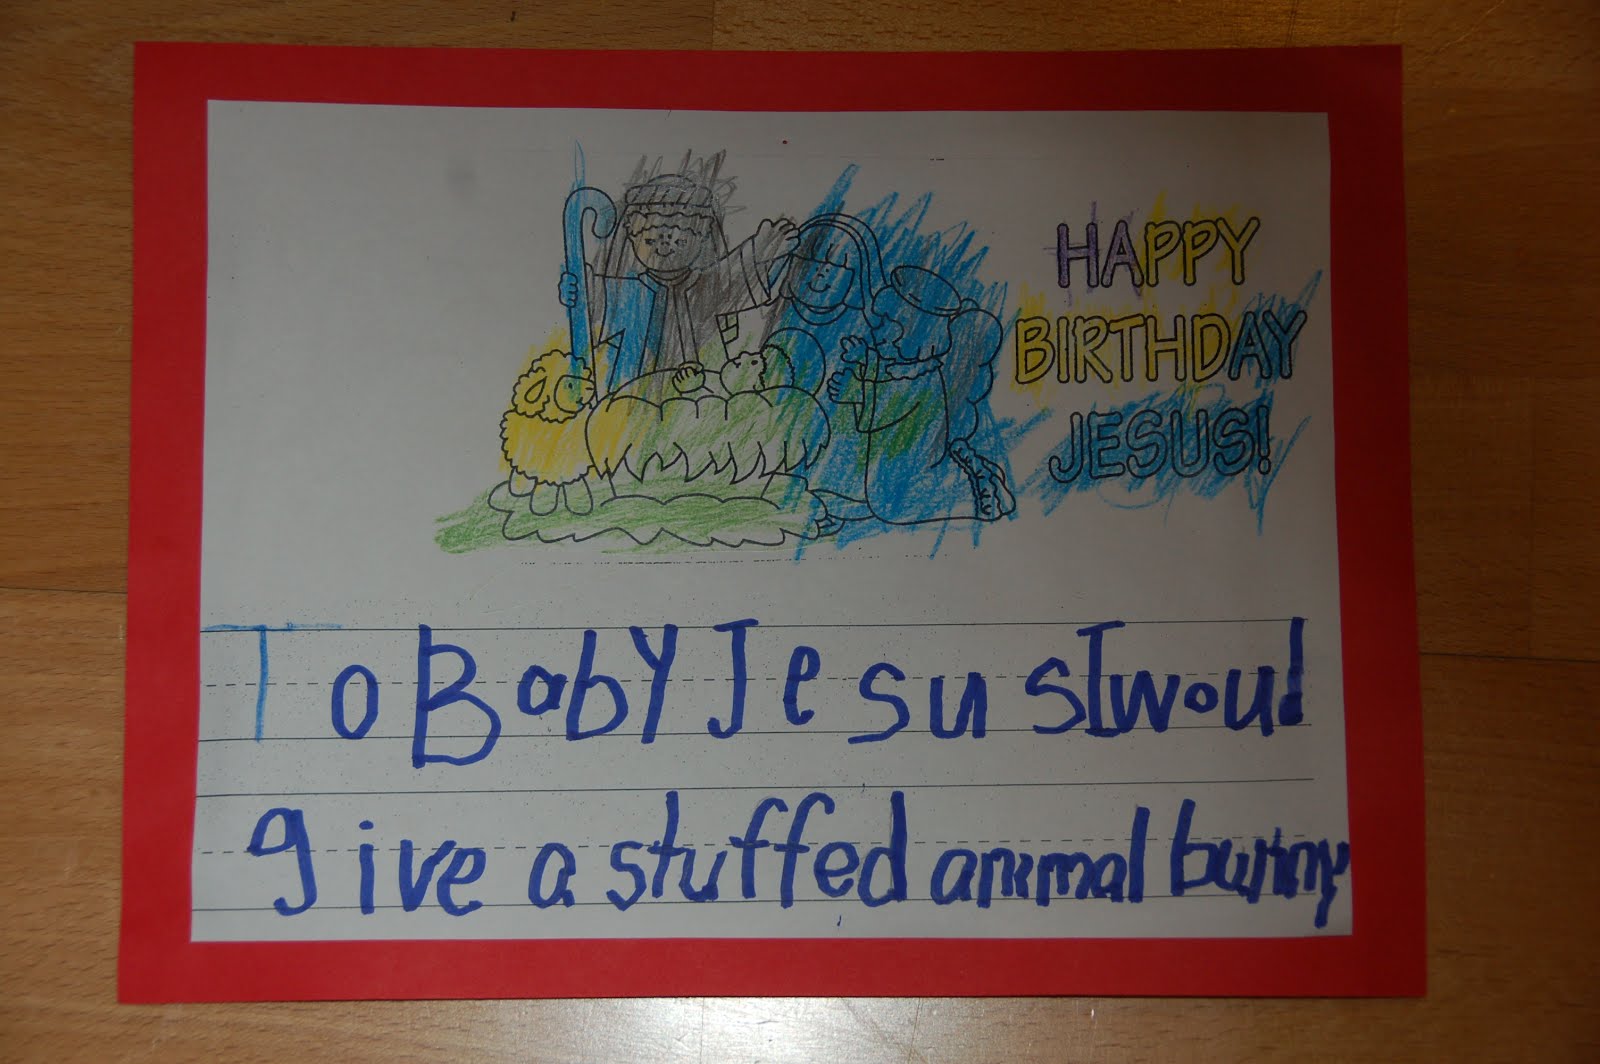 HAPPY
BIRTHDAY
JESUS!
To BabY Jesus Iwoul
give a stuffed animal bunny